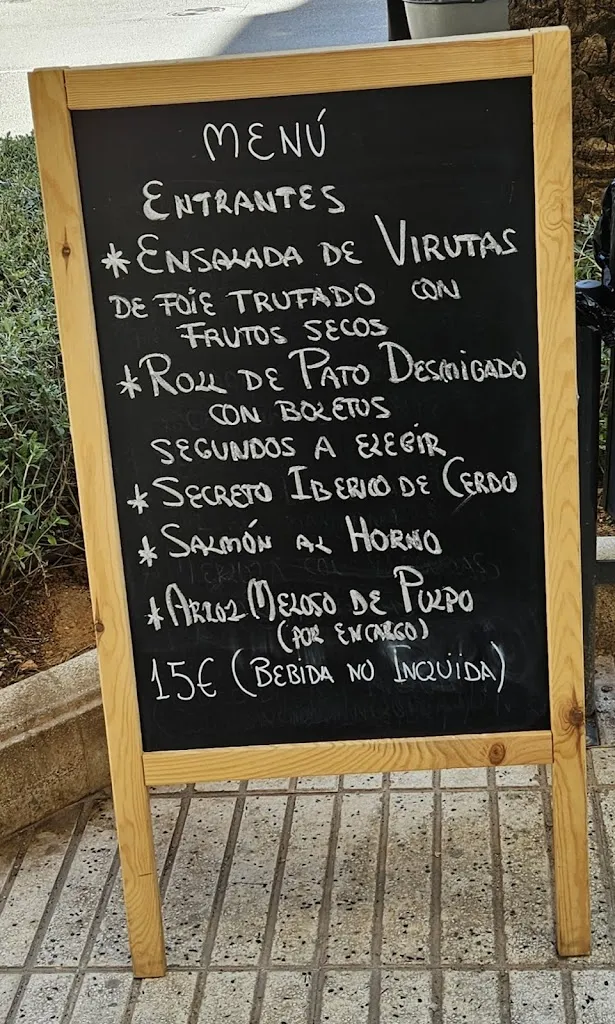 MENÚ
ENTRANTES
* ENSALADA DE VIRUTAS
DE FOIE TRUFADO CON
FRUTOS SECOS
* ROLL DE PATO DESMIGADO
CON BOLETOS
SEGUNDOS A ELEGIR
* SECRETO IBERICO DE CERDO
* SALMÓN AL HORNO
* ARROZ MELOSO DE PULPO
(POR ENCARGO)
15€ (BEBIDA NO INCLUIDA)